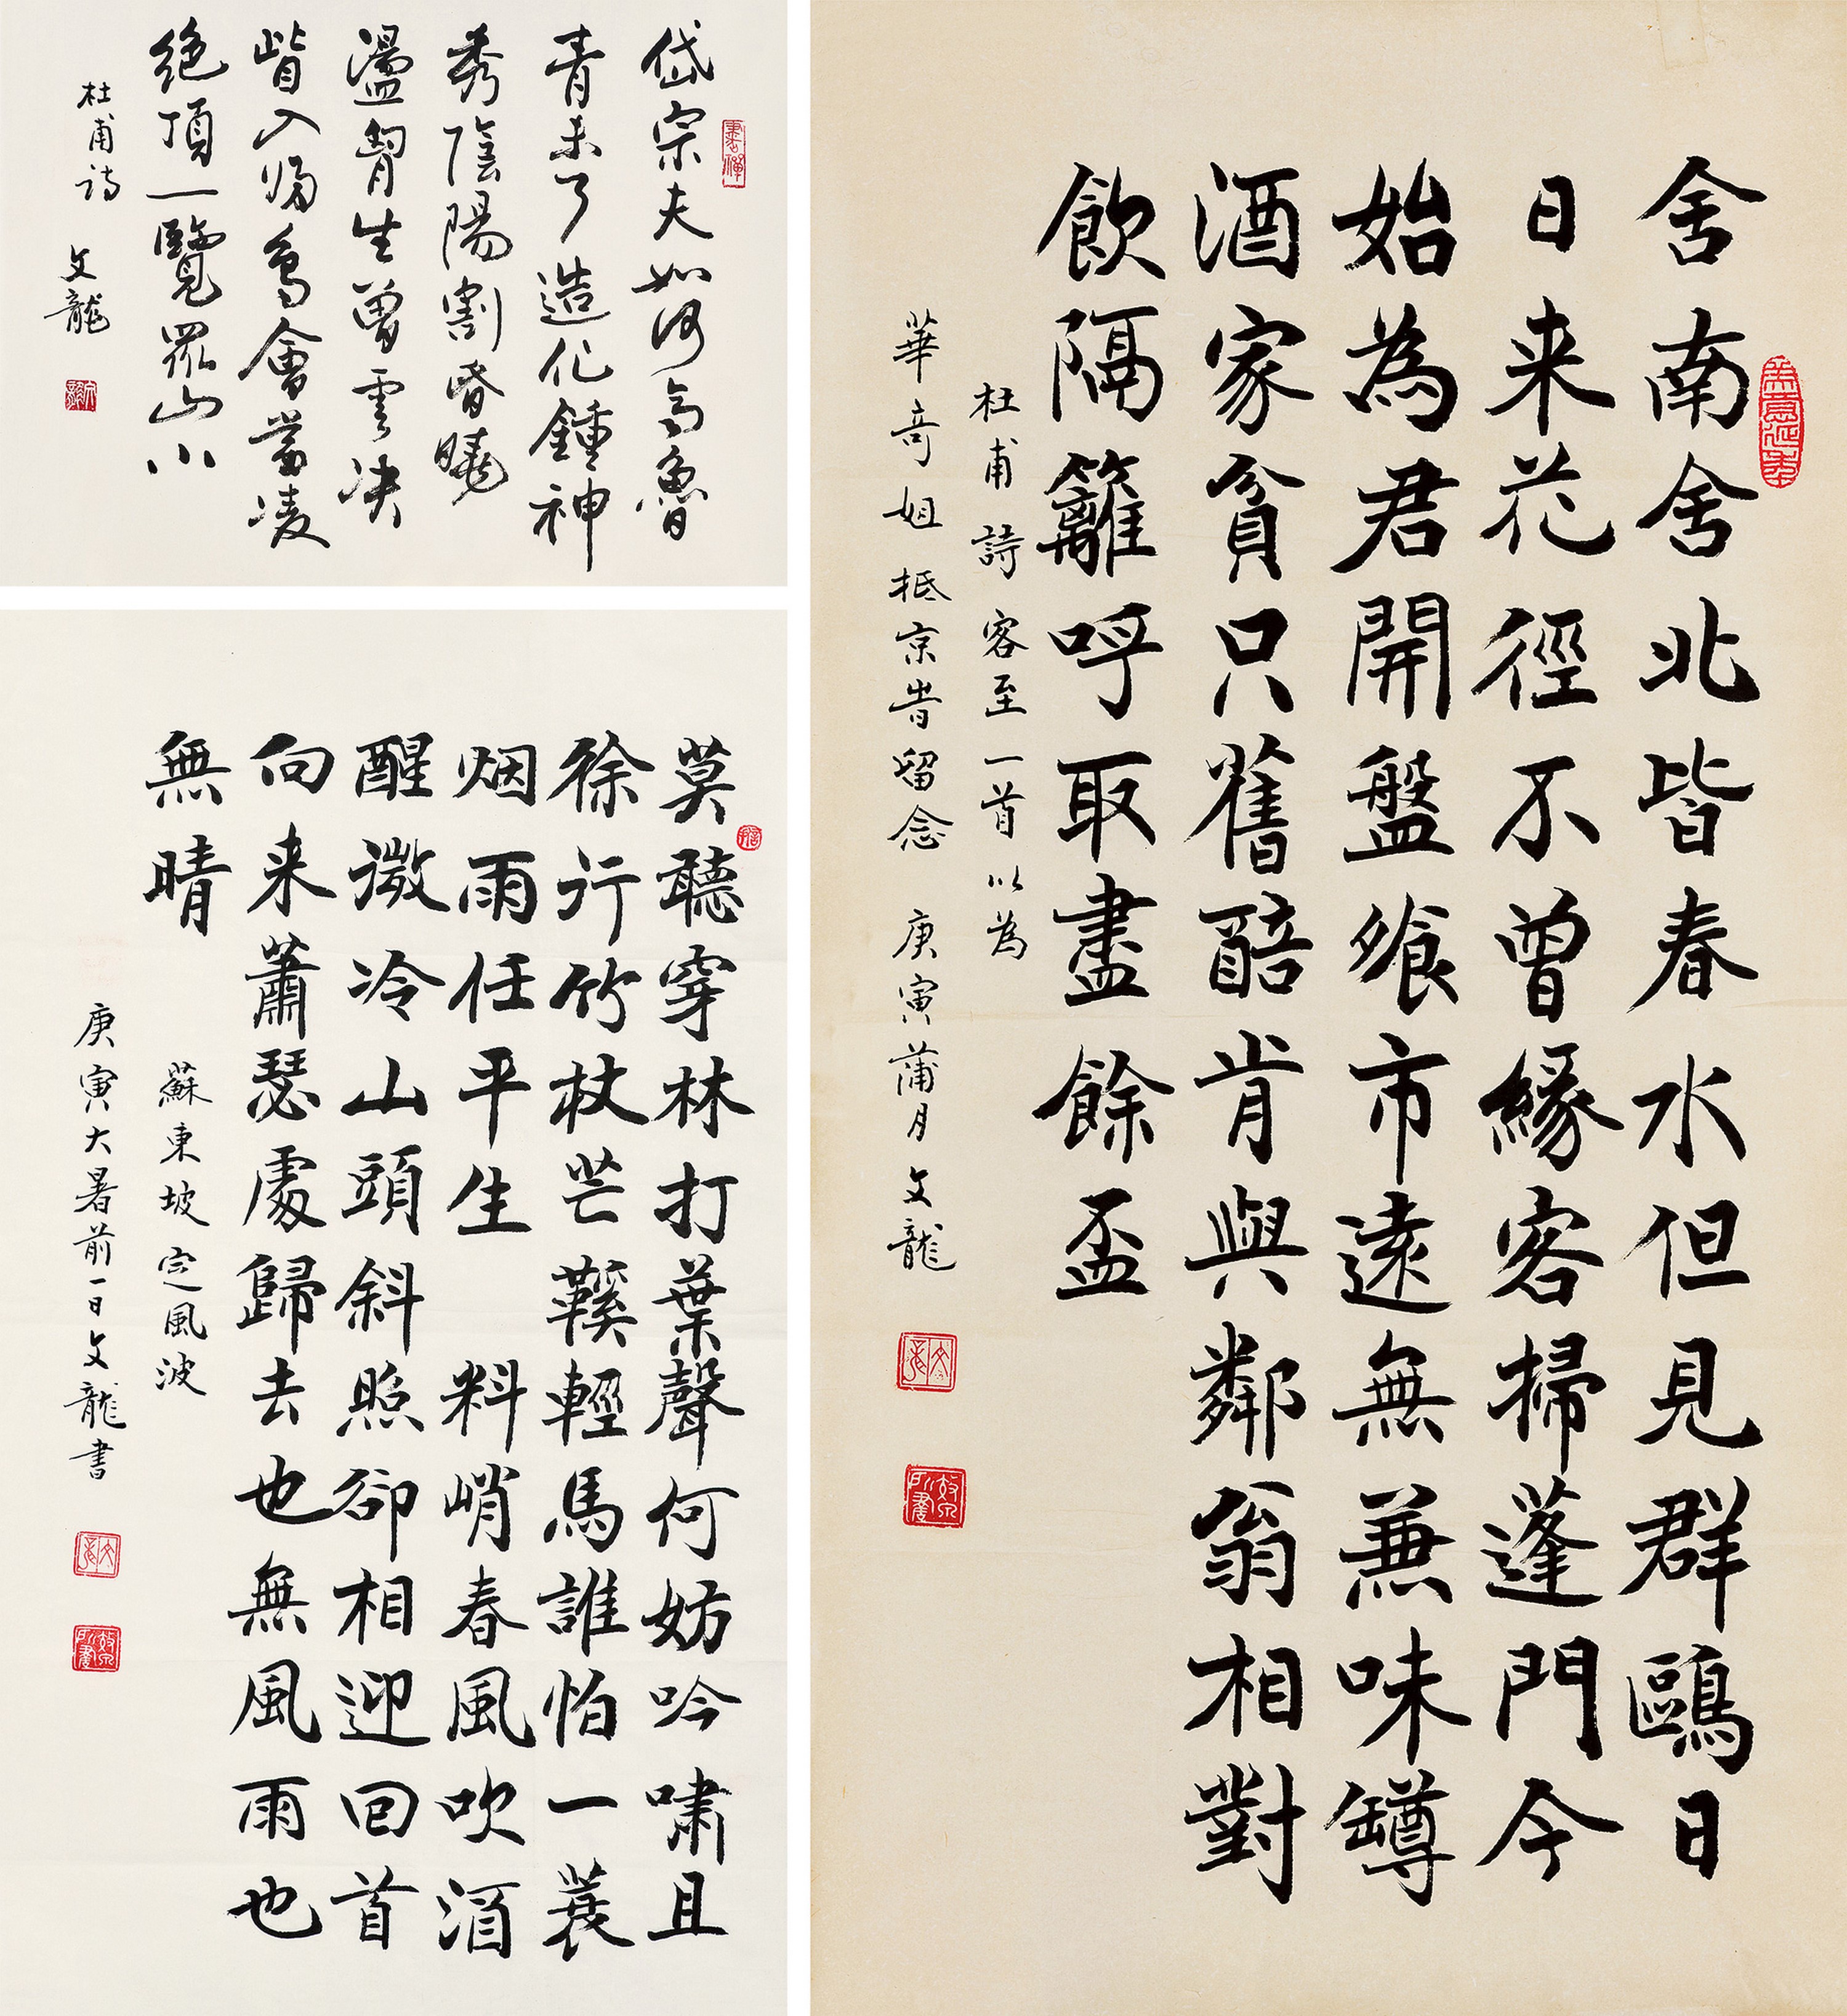 舍南舍北皆春水但見群鷗日
日来花徑不曾緣客掃蓬門今
始為君開盤飧市遠無兼味罇
酒家貧只舊醅肯與鄰翁相對
飲隔籬呼取盡餘盃
杜甫詩客至一首以為
華奇姐抵京旹留念 庚寅蒲月文龍
文龍
書禪
岱宗夫如何齊魯
青未了造化鍾神
秀陰陽割昏曉
盪胷生曾雲決
眥入歸鳥會當凌
絕頂一覽眾山小
杜甫詩 文龍
莫聽穿林打葉聲何妨吟嘯且
徐行竹杖芒鞵輕馬誰怕一蓑
烟雨任平生 料峭春風吹酒
醒微冷山頭斜照卻相迎回首
向来蕭瑟處歸去也無風雨也
無晴
蘇東坡定風波
庚寅大暑前一日文龍書
文龍